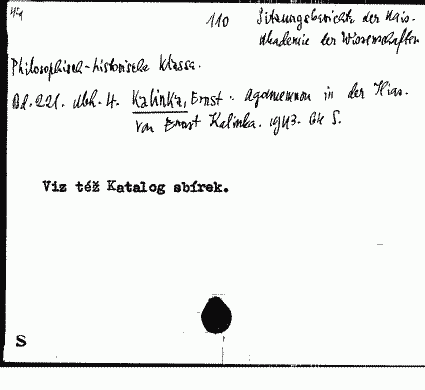 110 Sitzungsberichte der Kais.
Akademie der Wissenschaften
Philosophisch-historische Klasse.
Bd. 221. Abh. 4. Kalinka, Ernst: Agamemnon in der Ilias.
Von Ernst Kalinka. 1943. S.
Viz též Katalog sbírek.
S